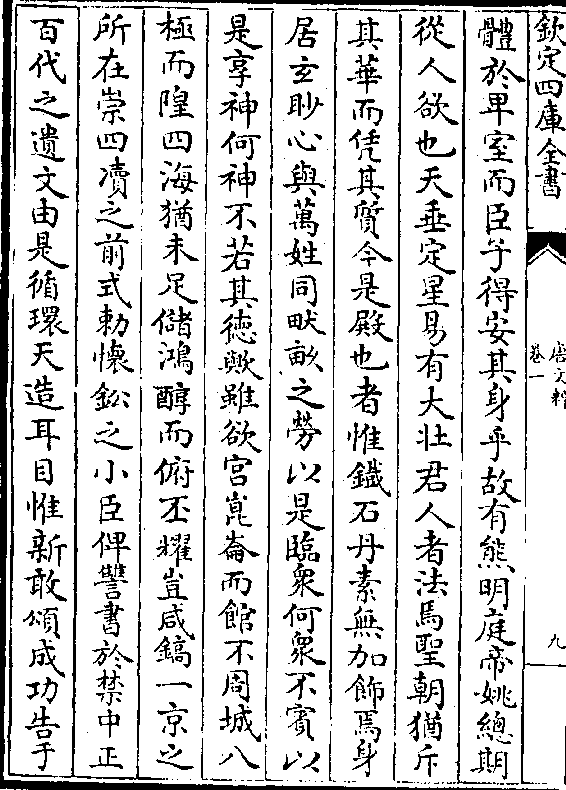 欽定四庫全書
唐文粹
卷一
九
體於卑室而臣子得安其身乎故有熊明庭帝姚總期
從人欲也天垂定星易有大壯君人者法焉聖朝猶斥
其華而凭其質今是殿也者惟鐵石丹素無加飾焉身
居玄眇心與萬姓同畎畝之勞以是臨衆何衆不賓以
是享神何神不若其徳歟雖欲宫崑崙而館不周城八
極而隍四海猶未足儲鴻醇而俯丕耀豈咸鎬一京之
所在崇四凟之前式勅懷鈆之小臣俾讐書於禁中正
百代之遺文由是循環天造耳目惟新敢頌成功告于